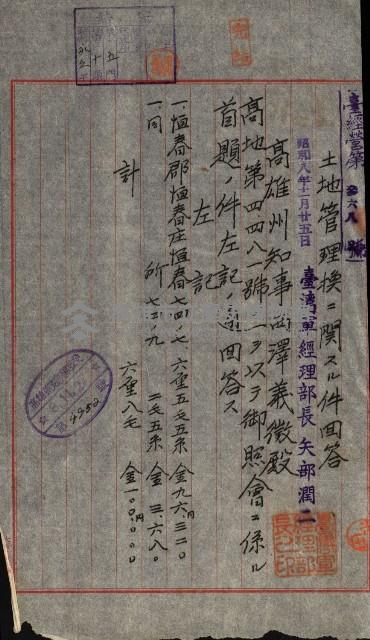 臺經營第多六八號
土地管理換ニ關スル件回答
昭和八年十一月廿五日 臺灣軍經理部長 矢部潤二
高雄州知事西澤義徵殿
高地第四四八一號ノ一ヲ以テ御照會ニ係ル
首題ノ件左記ノ通回答ス
左記
一、恒春郡恒春庄恒春七四ノ七 六厘五毛五糸 金九六、三二〇
一、同 所 七三ノ九 二毛五糸 金三、六八〇
計 六厘八毛 金一〇〇、〇〇〇